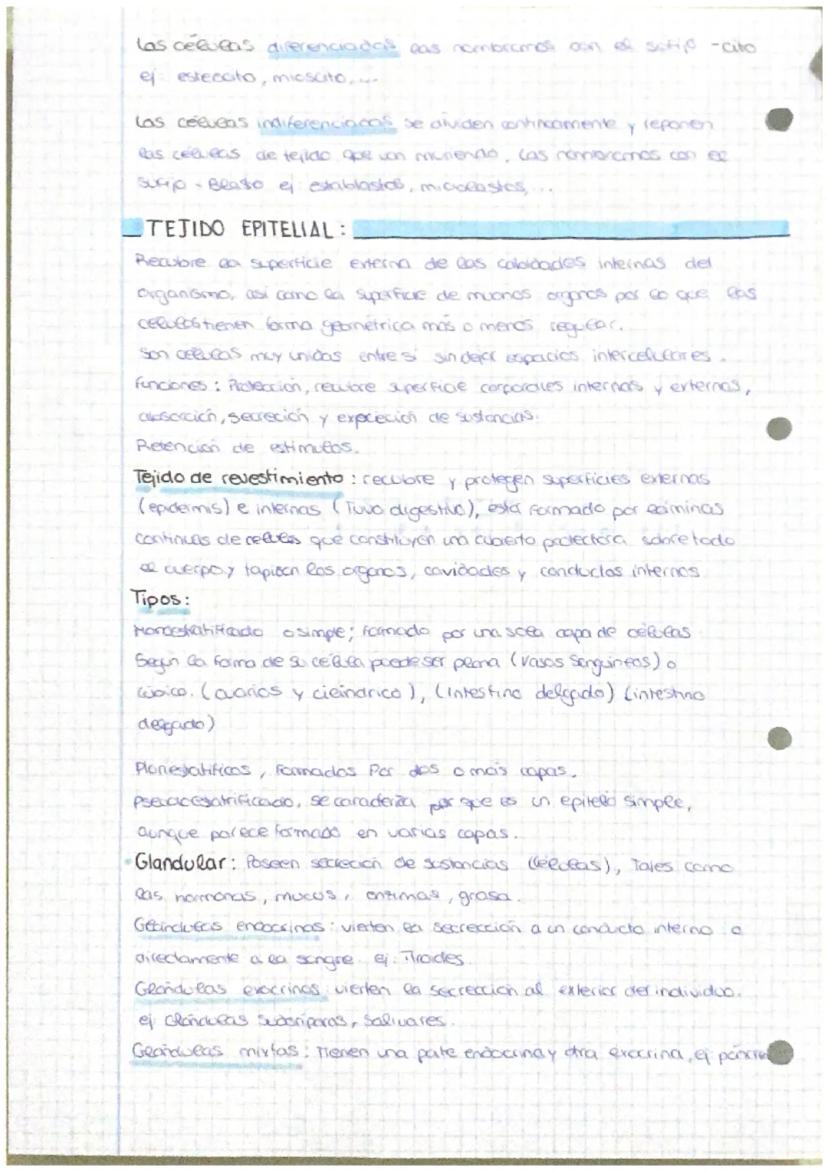 Las células diferenciadas las nombramos con el sufijo -cito
ej: esteocito, miosito,...
Las células indiferenciadas se dividen continuamente y reponen
las células de tejido que van muriendo. Las nombramos con el
sufijo - Blasto ej
TEJIDO EPITELIAL:
Recubre la superficie externa de las internas del
organismo, así como la superficie de muchos organos por lo que las
células tienen forma geométrica más o menos regular.
Son células muy unidas entre sí sin dejar espacios intercelulares.
Funciones: Protección, recubre superficie corporales internas y externas,
absorción, secreción y de sustancias.
Retención de estimulos.
Tejido de revestimiento: recubre y protegen superficies externas
(epidermis) e internas (Tuvo digestivo), está formado por láminas
continuas de células que constituyen una cubierta protectora sobre todo
el cuerpo y tapizan los organos, cavidades y conductos internos
Tipos:
Monoestratificado o simple; formado por una sola capa de células
Según la forma de su célula puede ser plana (vasos sanguineos) o
cúbica. (ovarios y cilíndrico), (Intestino delgado) (intestino
delgado)
, Formados Por dos o más capas.
, se caracteriza por que es un epitelio simple,
aunque parece formado en varias capas.
Glandular: Poseen secreción de sustancias (células), Tales como
las hormonas, mucus, enzimas, grasa.
Glándulas endocrinas: vierten la secrección a un conducto interno o
directamente a la sangre. ej: Tiroides
Glándulas exocrinas: vierten la secrección al exterior del individuo.
ej Glándulas Sudoríparas, Salivares.
Glándulas mixtas: Tienen una parte endocrina y otra exocrina, ej